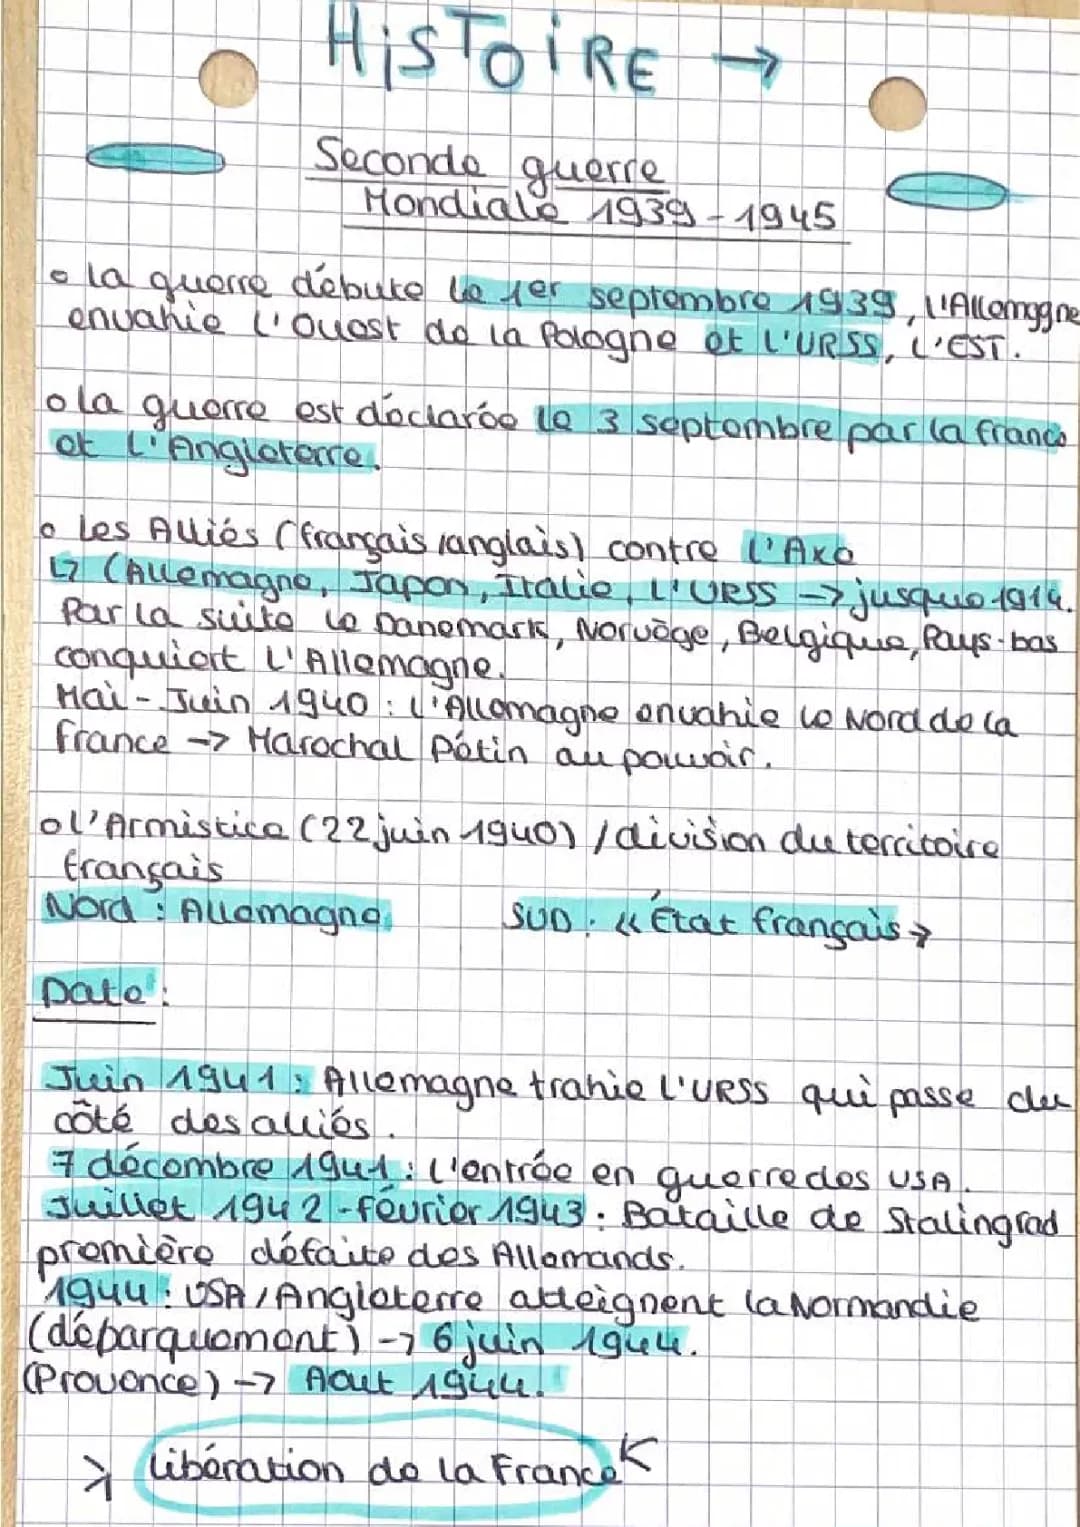 HiSToiRE →
Seconde guerre
Mondiale 1939-1945
• la guerre débute le 1er septembre 1939, l'Allemagne
envahie l'Ouest de la Pologne et l'URSS, l'EST.
• la guerre est déclarée le 3 septembre par la france
et l'Angleterre.
• Les Alliés (français/anglais) contre l'Axe
↳ (Allemagne, Japon, Italie, L'URSS → jusque 1914.
Par la suite le Danemark, Norvège, Belgique, Pays-bas
conquiert l'Allemagne.
Mai-Juin 1940 : l'Allemagne envahie le Nord de la
france → Marechal Pétin au pouvoir.
• l'Armistice (22 juin 1940) / division du territoire
français
Nord : Allemagne SUD : « État français >
Date :
Juin 1941 : Allemagne trahie l'URSS qui passe du
côté des alliés.
7 décembre 1941 : l'entrée en guerre des USA.
Juillet 1942 - février 1943 : Bataille de Stalingrad
première défaite des Allemands.
1944 : USA/Angleterre atteignent la Normandie
(déparquement) → 6 juin 1944.
(Provence) → Aout 1944.
> Libération de la France <